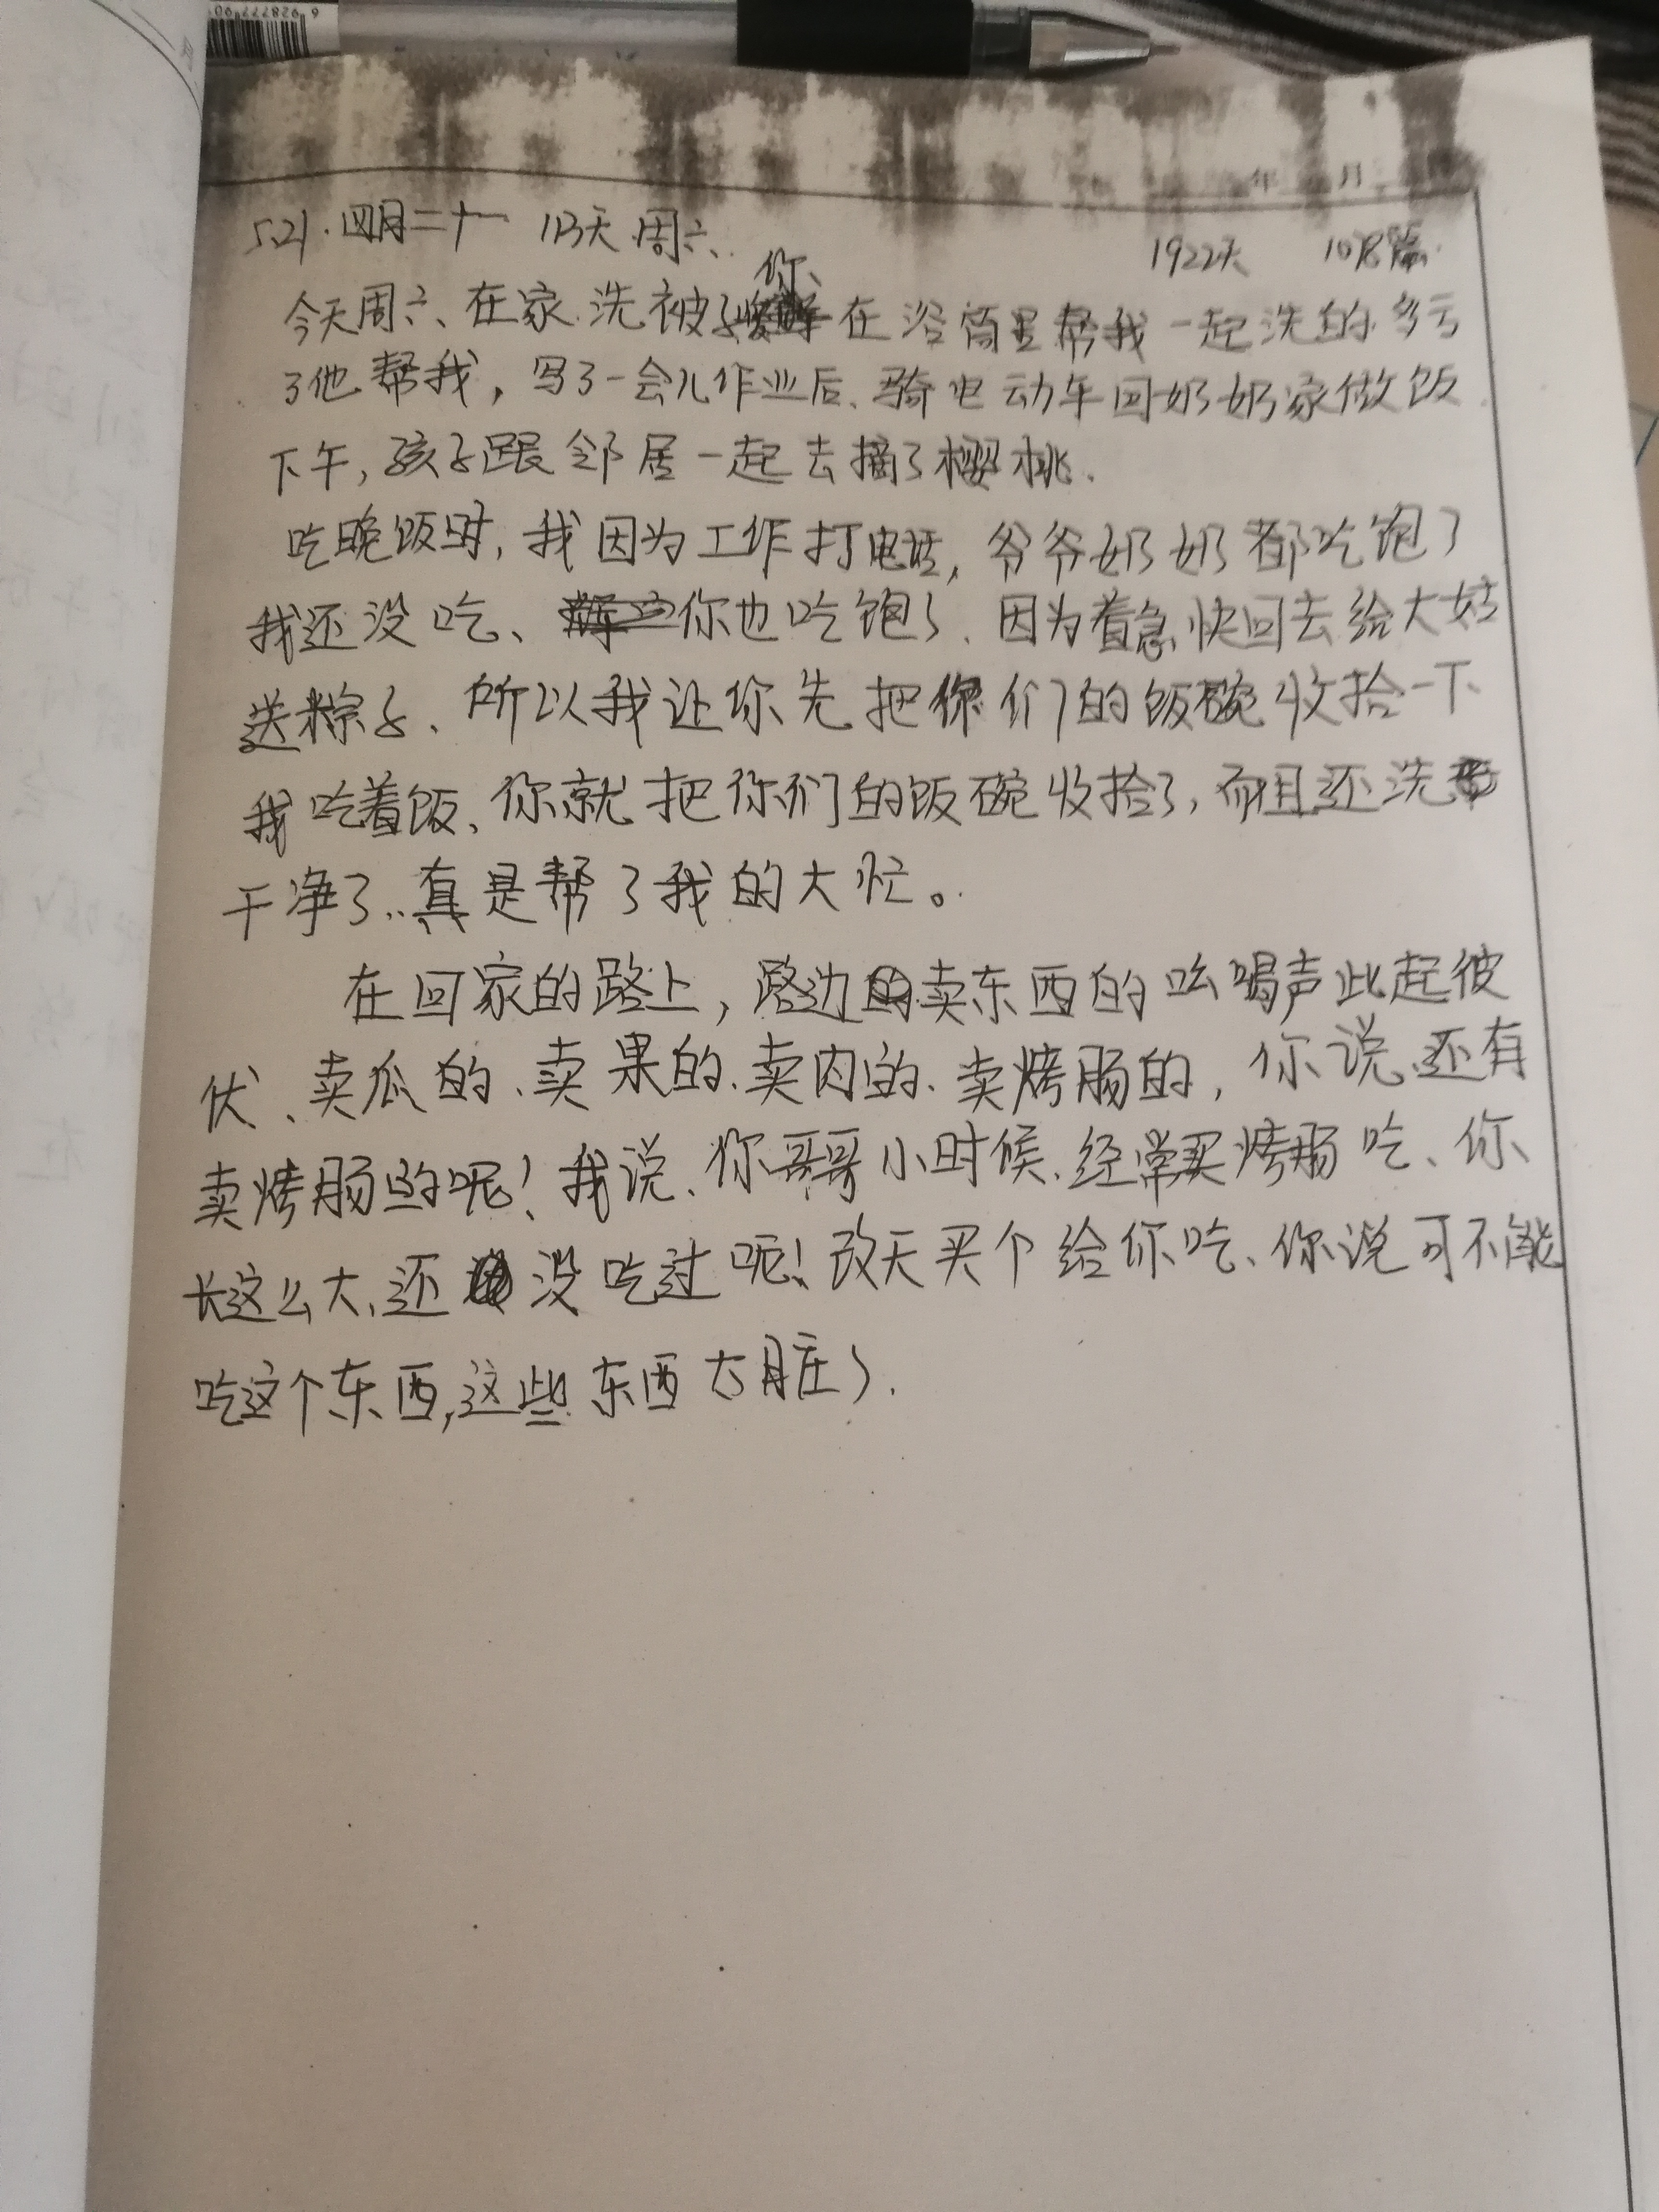 年 月
5.21.四月二十一 113天 周六、 1922天 1078篇.
你、
今天周六、在家.洗被子 在浴筒里帮我一起洗的.多亏
了他帮我，写了一会儿作业后、骑电动车回奶奶家做饭.
下午,孩子跟邻居一起去摘了樱桃.
吃晚饭时,我因为工作打电话,爷爷奶奶都吃饱了
我还没吃、你也吃饱了、因为着急快回去给大姑
送粽子、所以我让你先把你们的饭碗收拾一下
我吃着饭、你就把你们的饭碗收拾了,而且还洗
干净了..真是帮了我的大忙。
在回家的路上,路边卖东西的吆喝声此起彼
伏、卖瓜的、卖果的、卖肉的、卖烤肠的,你说、还有
卖烤肠的呢!我说、你哥哥小时候、经常买烤肠吃、你、
长这么大、还没吃过呢!改天买个给你吃、你说可不能
吃这个东西,这些东西太脏了.